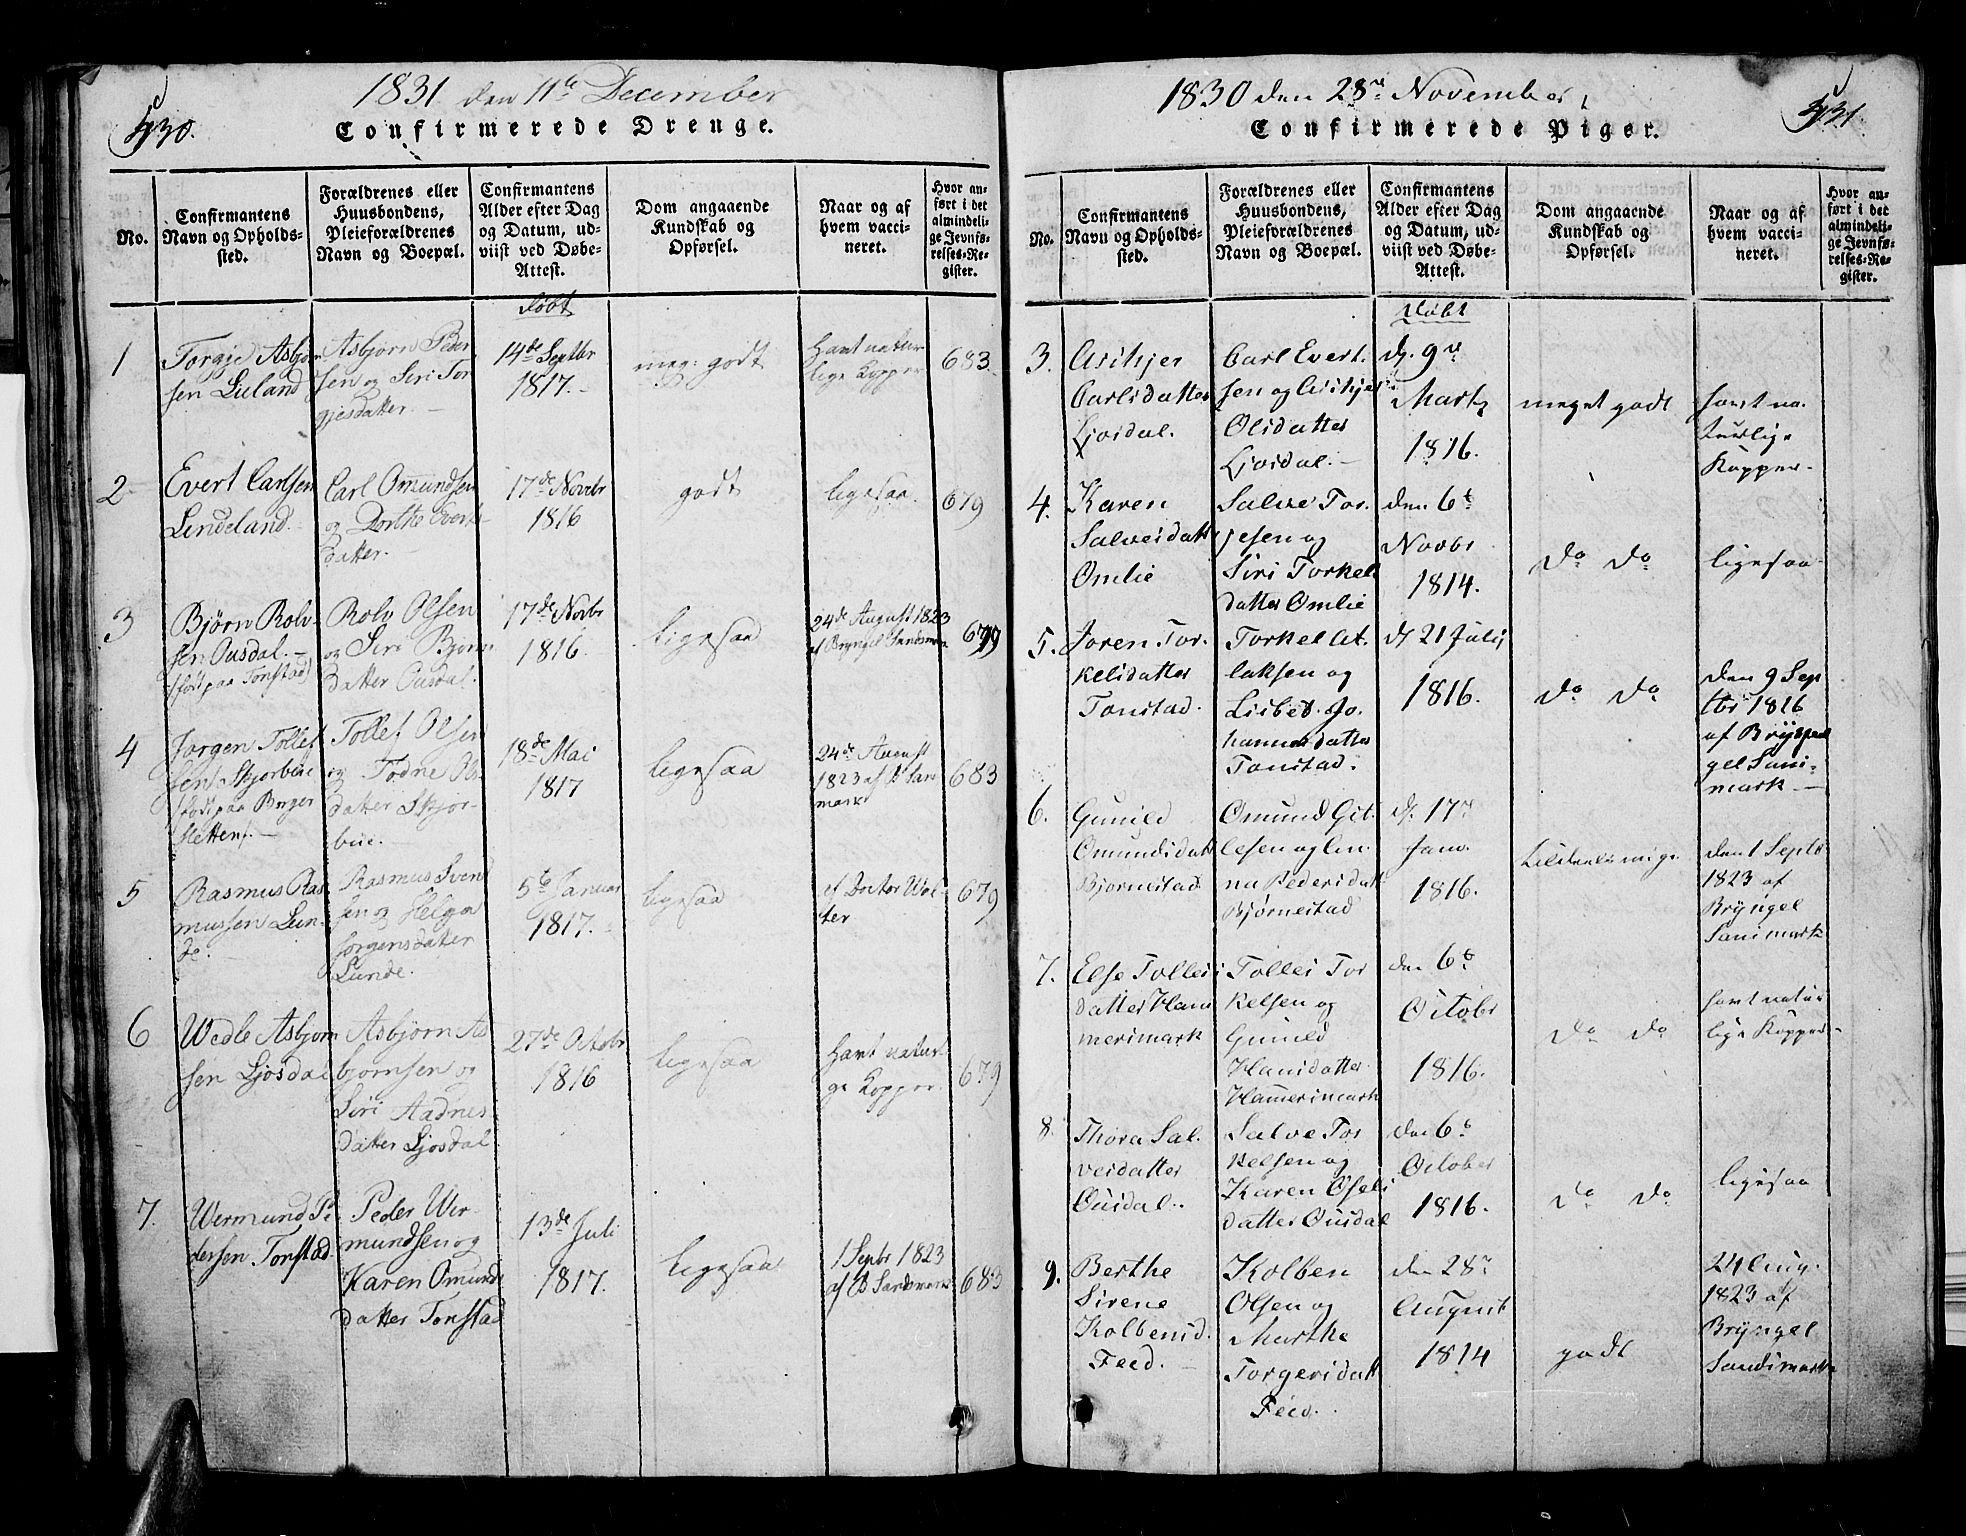 430.
1831 den 11te December
Confirmerede Drenge.
No.
Confirmantens
Navn og Opholds-
sted.
Forældrenes eller
Huusbondens,
Pleieforældrenes
Navn og Boepæl.
Confirmantens
Alder efter Dag
og Datum, ud-
viist ved Døbe-
Attest.
Dom angaaende
Kundskab og
Opførsel.
Naar og af
hvem vacci-
neret.
Hvor an-
ført i det
almindeli-
ge Jevnfø-
relses-Re-
gister.
1
Torgje Asbjørn
sen Lieland
Asbjørn Peder
sen og Siri Tor
gjesdatter. -
døbt
14de Septbr
1817. -
meg: godt
Havt natur
lige Kopper
683.
2
Evert Carlsen
Lindeland.
Carl Omundsen
og Dorthe Everts
datter. -
17de Novbr
1816
godt
ligesaa.
679
3
Bjørn Rolv-
sen Ousdal. -
(født paa Tonstad)
Rolv Olsen
og Siri Bjørns
datter Ousdal.
17de Novbr
1816.
ligesaa
24de August 1823
af Bryngel Sandsmark
679
4
Jørgen Tollef
sen Skjorbue
(født paa Birger
sletten). -
Tollef Olsen
og Todne Ols
datter Skjor-
bue. -
18de Mai
1817
ligesaa
24de August
1823 af B San
mark
683
5
Rasmus Ras
mussen Lun-
de. -
Rasmus Svend
sen og Helga
Jørgensdatter
Lunde.
5te Januar
1817. -
ligesaa
af Doctor Wol-
ter
679
6
Wedle Asbjørn
sen Ljosdal
Asbjørn As
bjørnsen og
Siri Aadnes
datter Ljosdal
27de Octobr
1816
ligesaa
Havt naturl
ge Kopper
679
7.
Wermund Pe
dersen Tonstad
Peder Wer-
mundsen og
Karen Omunds
datter Tonstad
13de Juli
1817.
ligesaa
1 Septbr 1823
af B Sandsmark
683
1830 den 28de November,
431.
Confirmerede Piger.
No.
Confirmantens
Navn og Opholds-
sted.
Forældrenes eller
Huusbondens,
Pleieforældrenes
Navn og Boepæl.
Confirmantens
Alder efter Dag
og Datum, ud-
viist ved Døbe-
Attest.
Dom angaaende
Kundskab og
Opførsel.
Naar og af
hvem vacci-
neret.
Hvor an-
ført i det
almindeli-
ge Jevnfø-
relses-Re-
gister.
3.
Carlsdatter
Ljosdal.
Carl Evert.
sen og
Olsdatter
Ljosdal. -
Døbt
d. 9de
Marts
1816.
meget godt
havt na.
turlige
Kopper-
4.
Karen
Salvesdatt
Omlie
Salve Tor.
jesen og
Siri Torkels
datter Omlie
den 6te
Novbr
1814.
Do Do
ligesaa
5.
Joren Tor.
kelsdatter
Tonstad.
Torkel At.
laksen og
Lisbet Jo.
hannesdatter
Tonstad.
d. 21 Juli
1816.
Do Do
den 9 Sep
tbr 1816
af Bryn
gel Sans-
mark. -
6.
Gunild
Omundsdatt
Bjørnestad
Omund Git.
lesen og An.
na Pedersdatt
Bjørnestad
d. 17de
Janv.
1816.
den 1 Septb
1823 af
Bryngel
Sansmark
7.
Else Tolles
datter Ham
mersmark
Tolles Tor
kelsen og
Gunild
Hansdatter
Hamersmark
den 6te
October
1816.
Do Do
havt natur
lige Kopper-
8.
Thora Sal.
vesdatter
Ousdal.
Salve Tor
kelsen og
Karen Osels
datter Ousdal
den 6te
October
1816.
Do Do
ligesaa
9.
Berthe
Sirene
Kolbensd.
Feed. -
Kolben
Olsen og
Marthe
Torgersdatt
Feed.
den 28de
August
1814
godt
24 Aug.
1823 af
Bryngel
Sandsmark